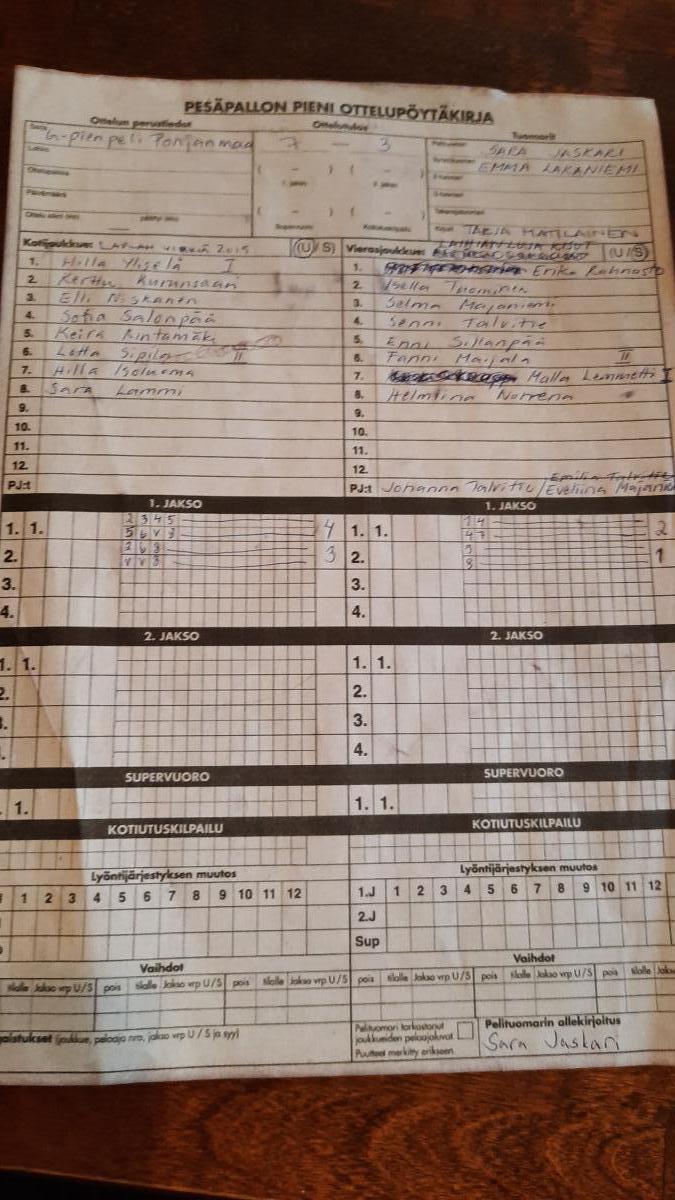 PESÄPALLON PIENI OTTELUPÖYTÄKIRJA
Ottelun perustiedot
Ottelutulos
Tuomarit
Sarja G-pienpeli Pohjanmaa
7 – 3
SARA JASKARI
EMMA LAKANIEMI
Lohko
Ottelupaikka
( – ) ( – )
1. jakso 2. jakso
2-tuomari
3-tuomari
Päivämäärä
Takarajatuomari
( – ) ( – )
Ottelu alkoi (klo) päättyi (klo)
Supervuoro Kotiutuskilpailu
Kirjuri TARJA MATILAINEN
Kotijoukkue: 2015 (U/S)
1. Hilla Yliselä I
2. Kerttu Kurunsaari
3. Elli Niskanen
4. Sofia Salonpää
5. Keira Rintamäki
6. Lotta Sipilä II
7. Hilla Isoluoma
8. Sara Lammi
9.
10.
11.
12.
PJ:t
Vierasjoukkue: LAIHIAN LUJA (U/S)
1. Erika Rahnasto
2. Isella Tuominen
3. Selma Majaniemi
4. Senni Talvitie
5. Enni Sillanpää
6. Fanni Maijala II
7. Malla Lemmetti I
8. Helmiina Norrena
9.
10.
11.
12.
PJ:t Johanna Talvitie / Emilia Talvitie
Eveliina
1. JAKSO
1. 1. 2 3 4 5 4
5 6 V 3
2. 3
V V 8
3.
4.
1. JAKSO
1. 1. 1 4 2
4 7
2. 1
8
3.
4.
2. JAKSO
1. 1.
2.
2. JAKSO
1. 1.
2.
3.
4.
SUPERVUORO
1.
SUPERVUORO
1. 1.
KOTIUTUSKILPAILU
KOTIUTUSKILPAILU
Lyöntijärjestyksen muutos
1 2 3 4 5 6 7 8 9 10 11 12
Lyöntijärjestyksen muutos
1.J 1 2 3 4 5 6 7 8 9 10 11 12
2.J
Sup
Vaihdot
tilalle Jakso vrp U/S pois tilalle Jakso vrp U/S pois tilalle Jakso vrp U/S
Vaihdot
pois tilalle Jakso vrp U/S pois tilalle Jakso vrp U/S pois tilalle
(joukkue, pelaaja nro, jakso vrp U / S ja syy)
Pelituomari tarkastanut
joukkueiden pelaajaluvat.
Puutteet merkitty erikseen.
Pelituomarin allekirjoitus
Sara Jaskari